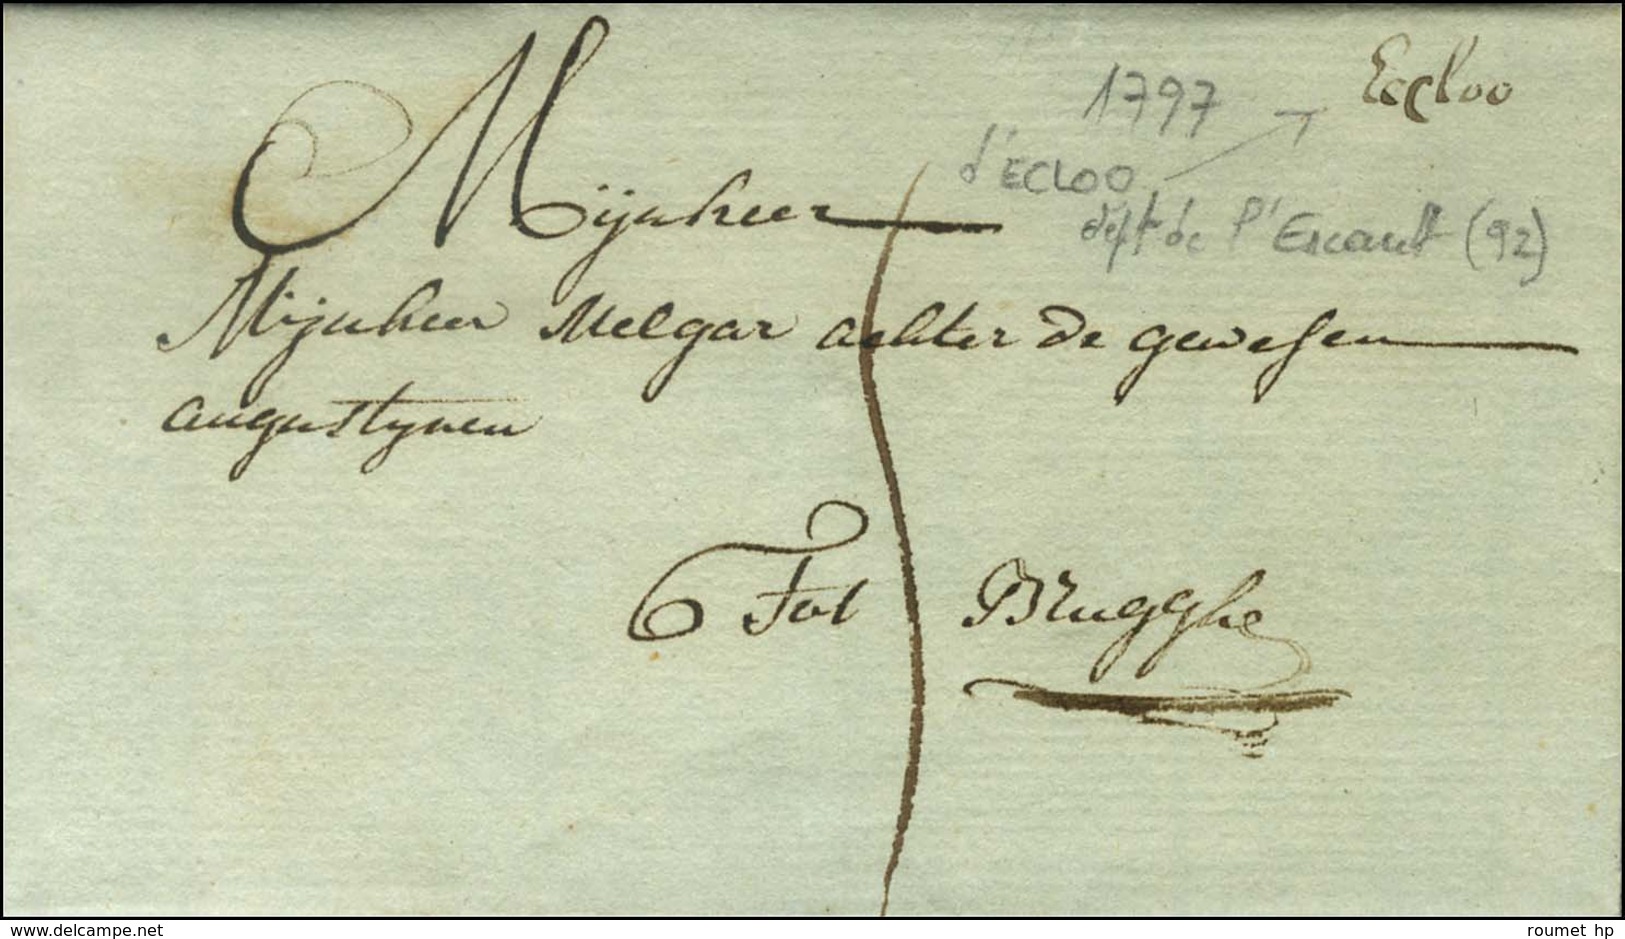 Eecloo
1797
d'ECLOO
dépt de l'Escaut (92)
Mijnheer
Mijnheer Melgar achter de gewesen
augustynen
Tot Brugghe
delcampe.net
roumet hp